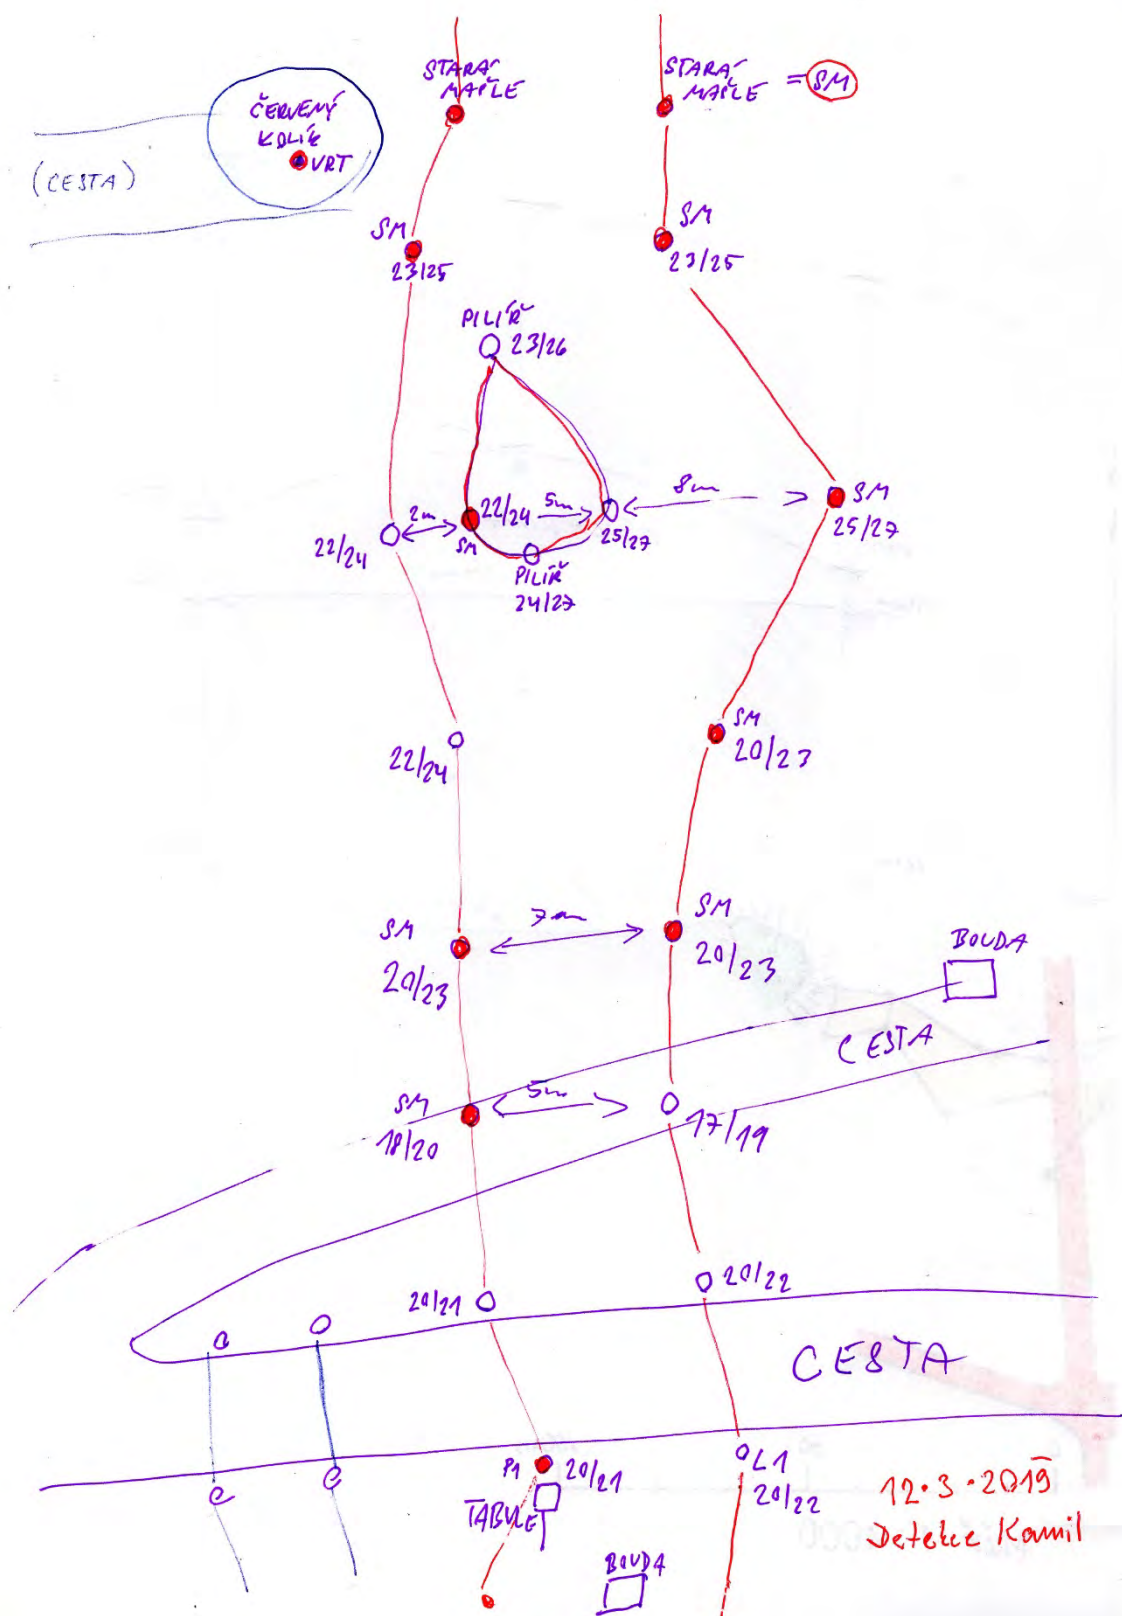 STARÁ
MAŠLE
STARÁ
MAŠLE = SM
ČERVENÝ
KOLÍK
VRT
(CESTA)
SM
23/25
SM
23/25
PILÍŘ
23/26
22/24
2m
22/24
SM
5m
25/27
8m
SM
25/27
PILÍŘ
24/27
22/24
SM
20/23
SM
20/23
7m
SM
20/23
BOUDA
CESTA
SM
18/20
5m
17/19
20/21
20/22
CESTA
P1
20/21
TABULE
L1
20/22
BOUDA
12.3.2019
Detekce Kamil